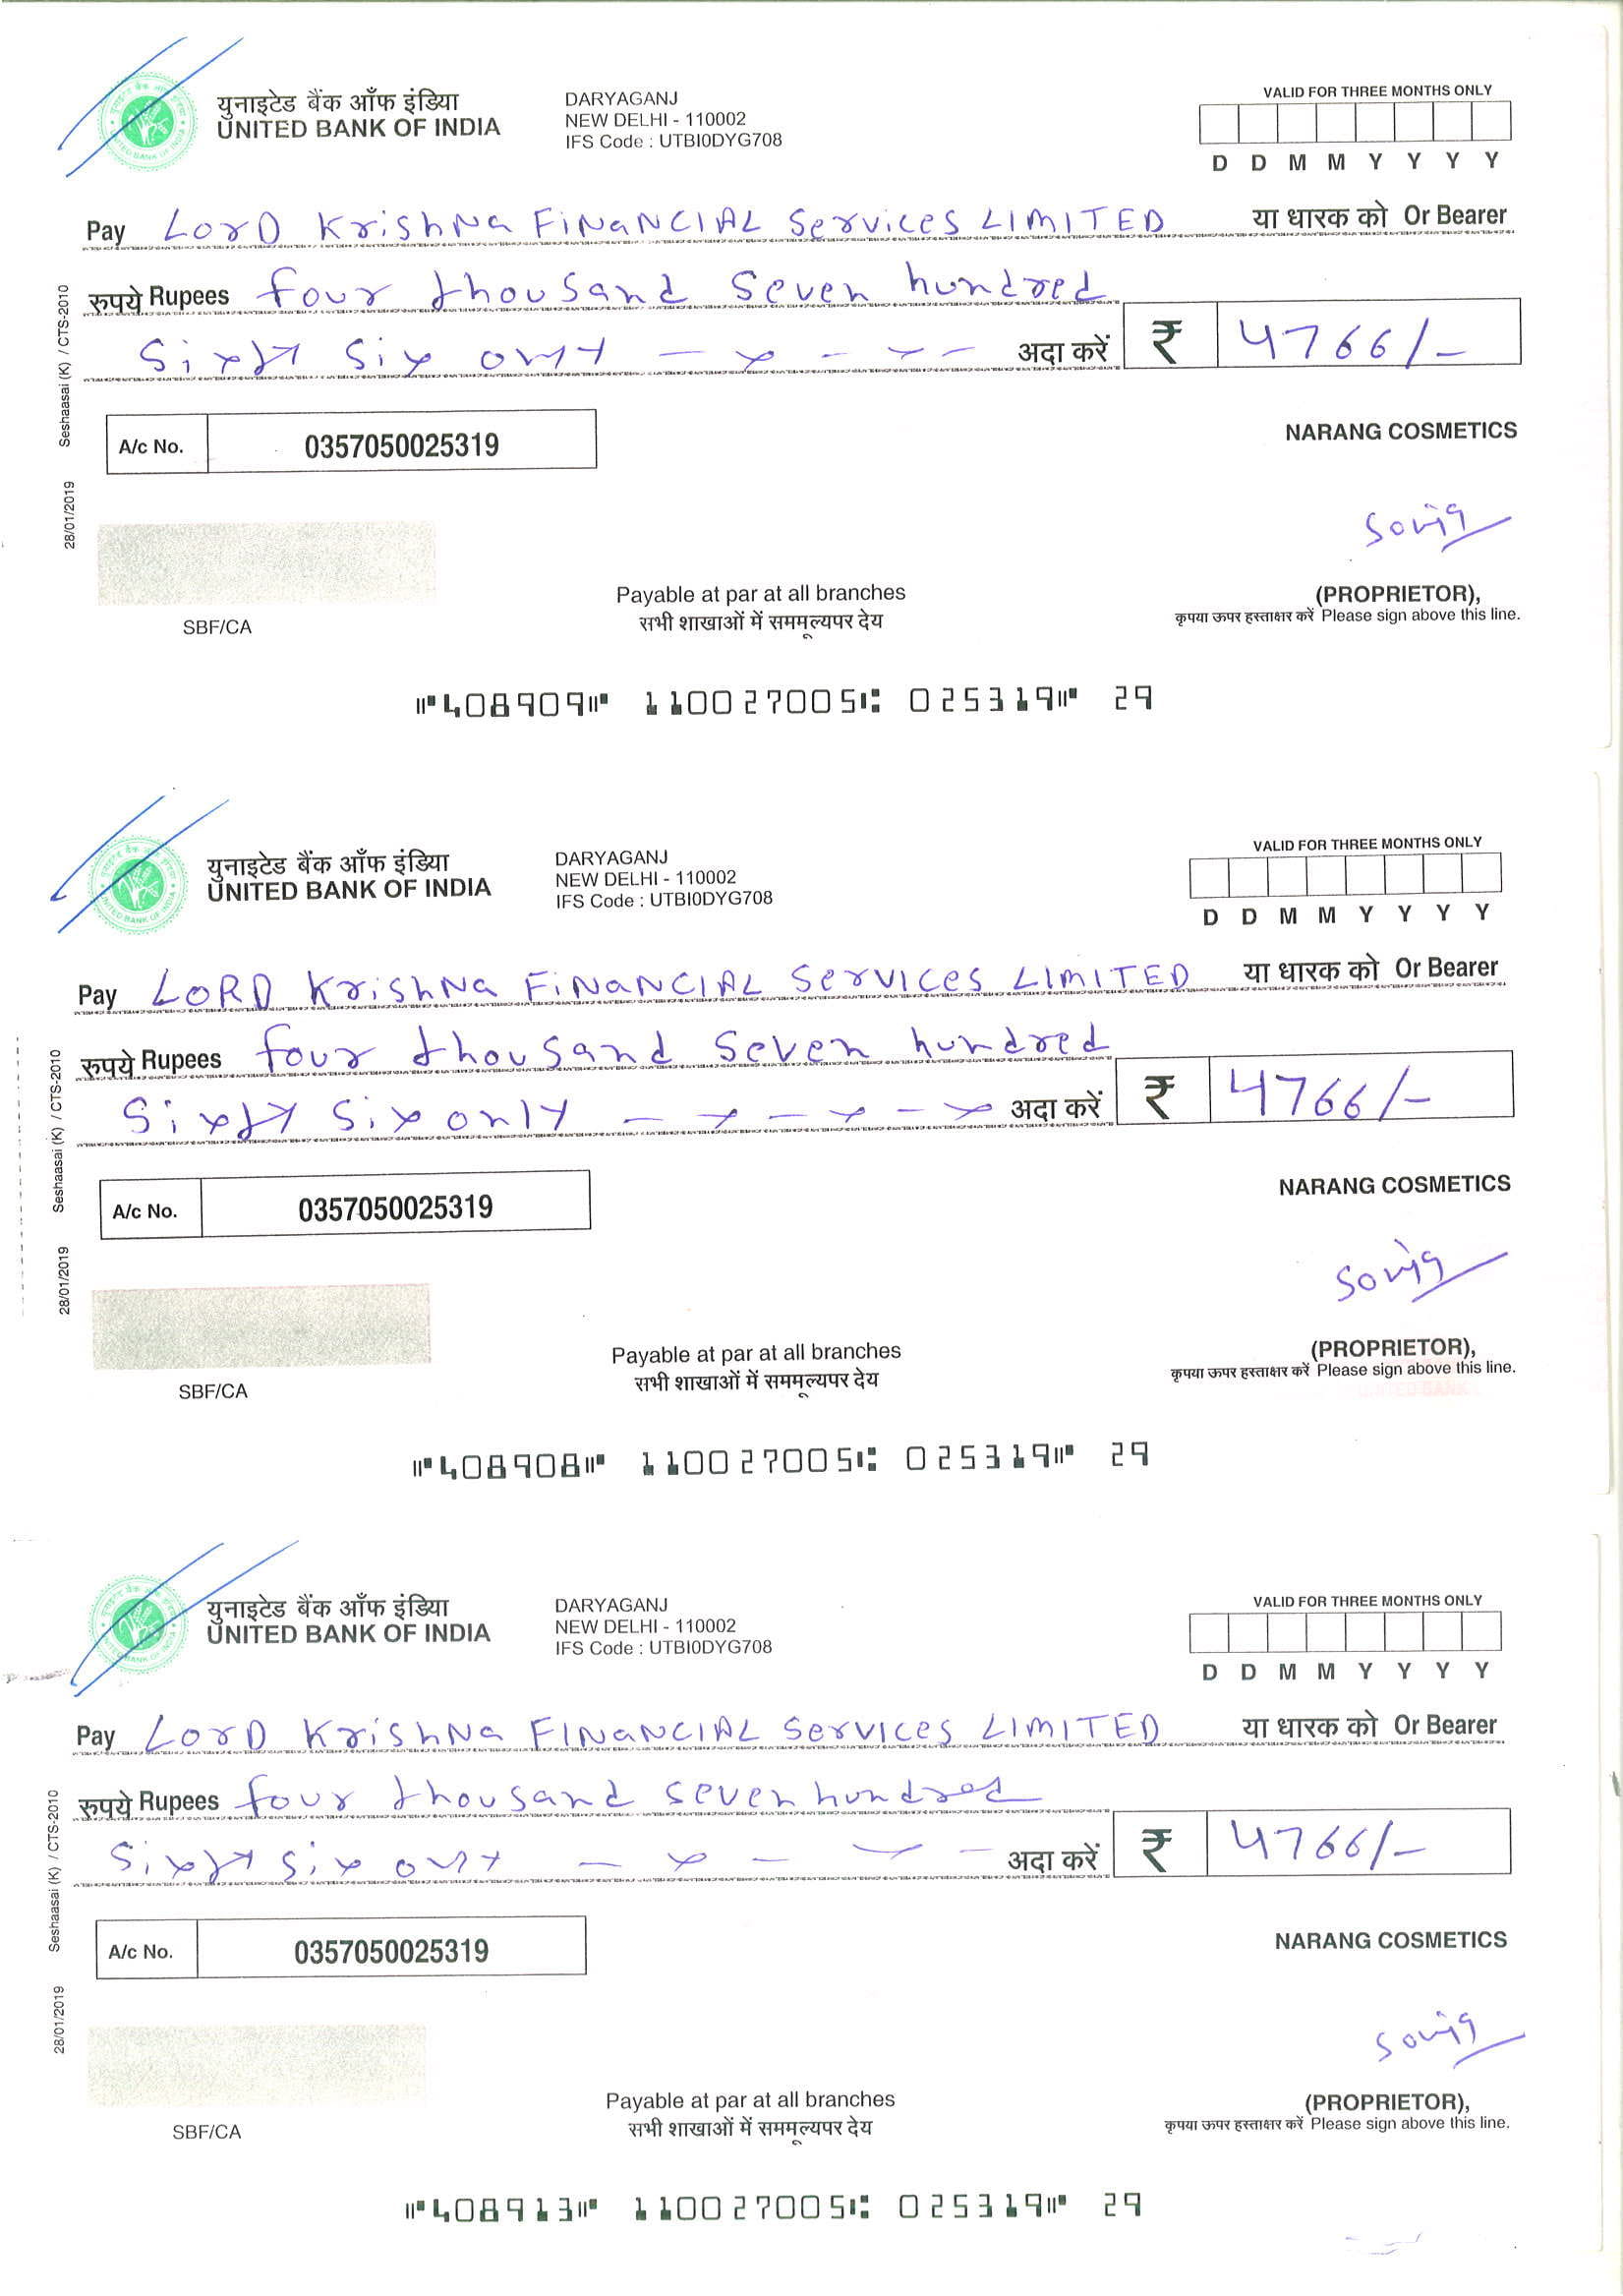 युनाइटेड बैंक ऑफ इंडिया
UNITED BANK OF INDIA
DARYAGANJ
NEW DELHI - 110002
IFS Code : UTBI0DYG708
VALID FOR THREE MONTHS ONLY
D D M M Y Y Y Y
Pay LorD KrishNa FiNaNCIAL Services LIMITED या धारक को Or Bearer
रुपये Rupees four thousand seven hundred
Sixty Six only अदा करें ₹ 4766/-
A/c No. 0357050025319
NARANG COSMETICS
Seshaasai (K) / CTS-2010
28/01/2019
SBF/CA
Payable at par at all branches
सभी शाखाओं में सममूल्यपर देय
(PROPRIETOR),
कृपया ऊपर हस्ताक्षर करें Please sign above this line.
⑈408909⑈ 110027005⑆ 025319⑈ 29
युनाइटेड बैंक ऑफ इंडिया
UNITED BANK OF INDIA
DARYAGANJ
NEW DELHI - 110002
IFS Code : UTBI0DYG708
VALID FOR THREE MONTHS ONLY
D D M M Y Y Y Y
Pay LORD KrishNa FiNaNCIAL Services LIMITED या धारक को Or Bearer
रुपये Rupees four thousand seven hundred
Sixty Six only अदा करें ₹ 4766/-
A/c No. 0357050025319
NARANG COSMETICS
Seshaasai (K) / CTS-2010
28/01/2019
SBF/CA
Payable at par at all branches
सभी शाखाओं में सममूल्यपर देय
(PROPRIETOR),
कृपया ऊपर हस्ताक्षर करें Please sign above this line.
⑈408908⑈ 110027005⑆ 025319⑈ 29
युनाइटेड बैंक ऑफ इंडिया
UNITED BANK OF INDIA
DARYAGANJ
NEW DELHI - 110002
IFS Code : UTBI0DYG708
VALID FOR THREE MONTHS ONLY
D D M M Y Y Y Y
Pay LorD KrishNa FINaNCIAL Services LIMITED या धारक को Or Bearer
रुपये Rupees four thousand seven hundred
Sixty six only अदा करें ₹ 4766/-
A/c No. 0357050025319
NARANG COSMETICS
Seshaasai (K) / CTS-2010
28/01/2019
SBF/CA
Payable at par at all branches
सभी शाखाओं में सममूल्यपर देय
(PROPRIETOR),
कृपया ऊपर हस्ताक्षर करें Please sign above this line.
⑈408913⑈ 110027005⑆ 025319⑈ 29